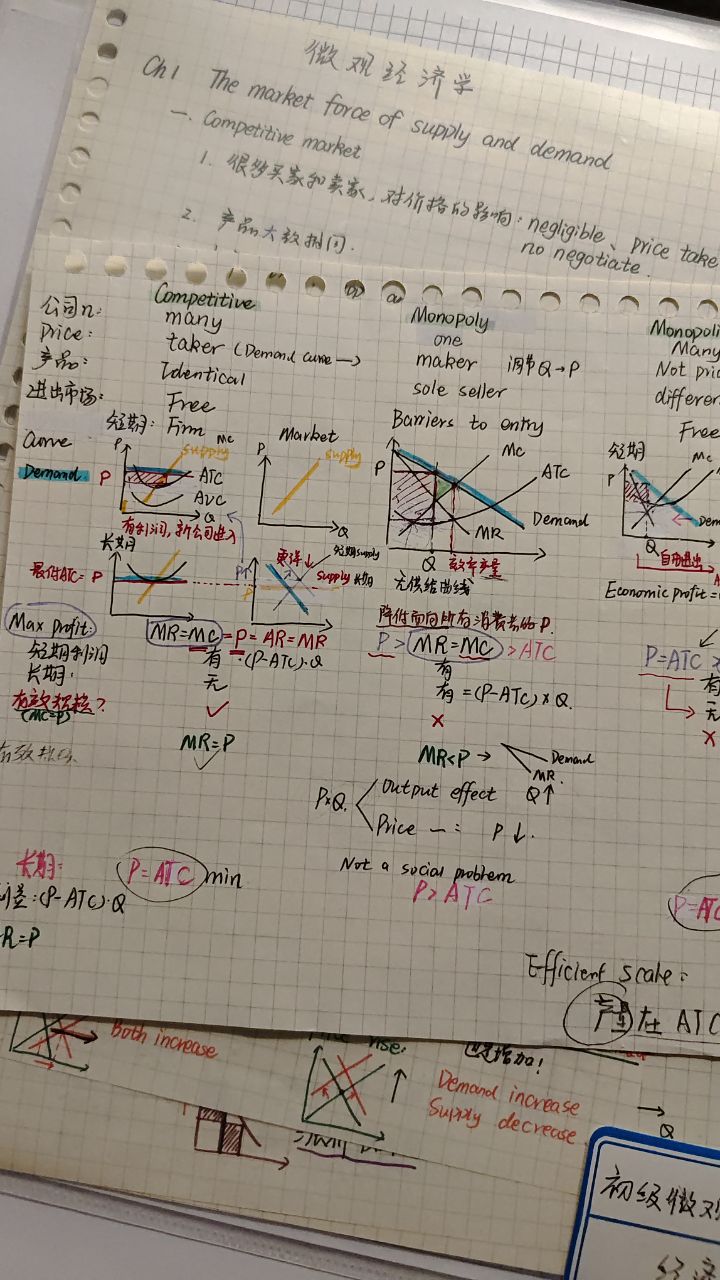 微观经济学
Ch1 The market force of supply and demand
一、Competitive market
1. 很多买家和卖家，对价格的影响：negligible、price take
no negotiate.
2. 产品大致相同.
Competitive Monopoly Monopoli
公司n: many one Many
Price: taker (Demand curve →) maker 调节Q→P Not pric
产品: Identical sole seller differen
进出市场: Free Barriers to entry Free
Curve 短期: Firm Market 短期
P MC supply P supply P MC ATC P MC
Demand P ATC
AVC
Q Q MR Demand Dem
有利润，新公司进入 Q 有效率产量 Q 自由进出
长期 短期supply 无供给曲线
最低ATC = P P↑ supply 长期 Economic profit =
降价面向所有消费者的P.
Max profit: MR=MC = P = AR = MR P > MR=MC > ATC P=ATC
短期利润 有 :(P-ATC)·Q 有 有
长期: 无 有 = (P-ATC) x Q. 无
有效规模? ✓ x x
(MC=P)
MR=P MR<P → Demand
MR
✓ Q↑
PxQ. Output effect
Price 一 : P↓.
Not a social problem
长期: P=ATC min P>ATC P=ATC
:(P-ATC)·Q
R=P
Efficient scale:
产量在 ATC
Both increase rise.
增加!
Demand increase
Supply decrease
→
Q
初级微观
经济